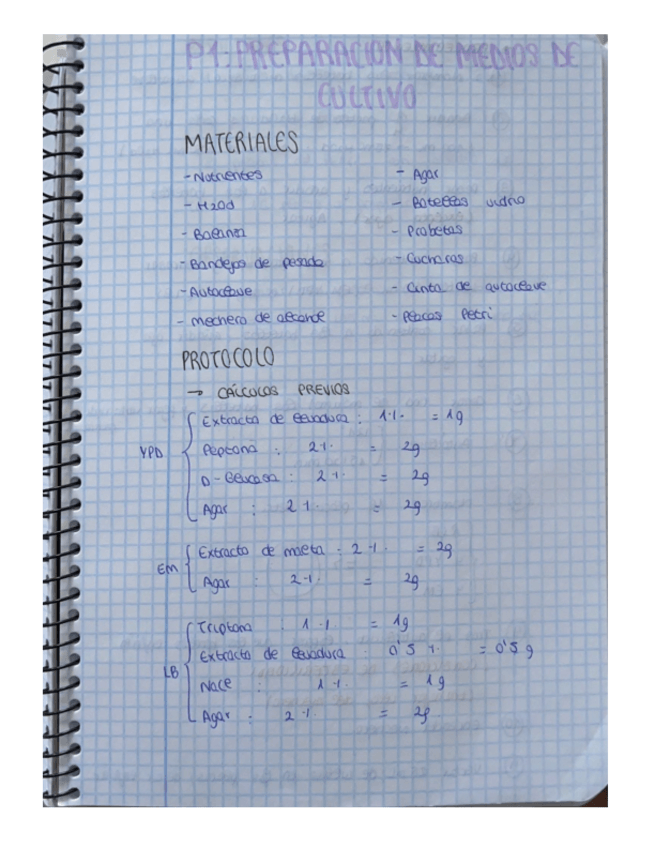 P1: PREPARACION DE MEDIOS DE
CULTIVO
MATERIALES
- Nutrientes
- H2Od
- Balanza
- Bandejas de pesada
- Autoclave
- mechero de alcohol
- Agar
- Botellas vidrio
- Probetas
- Cucharas
- Cinta de autoclave
- Placas Petri
PROTOCOLO
→ CÁLCULOS PREVIOS
YPD
Extracto de levadura : 1 % = 1g
Peptona : 2 % = 2g
D-Glucosa : 2 % = 2g
Agar : 2 % = 2g
EM
Extracto de malta : 2 % = 2g
Agar : 2 % = 2g
LB
Triptona : 1 % = 1g
Extracto de levadura : 0'5 % = 0'5 g
NaCl : 1 % = 1g
Agar : 2 % = 2g